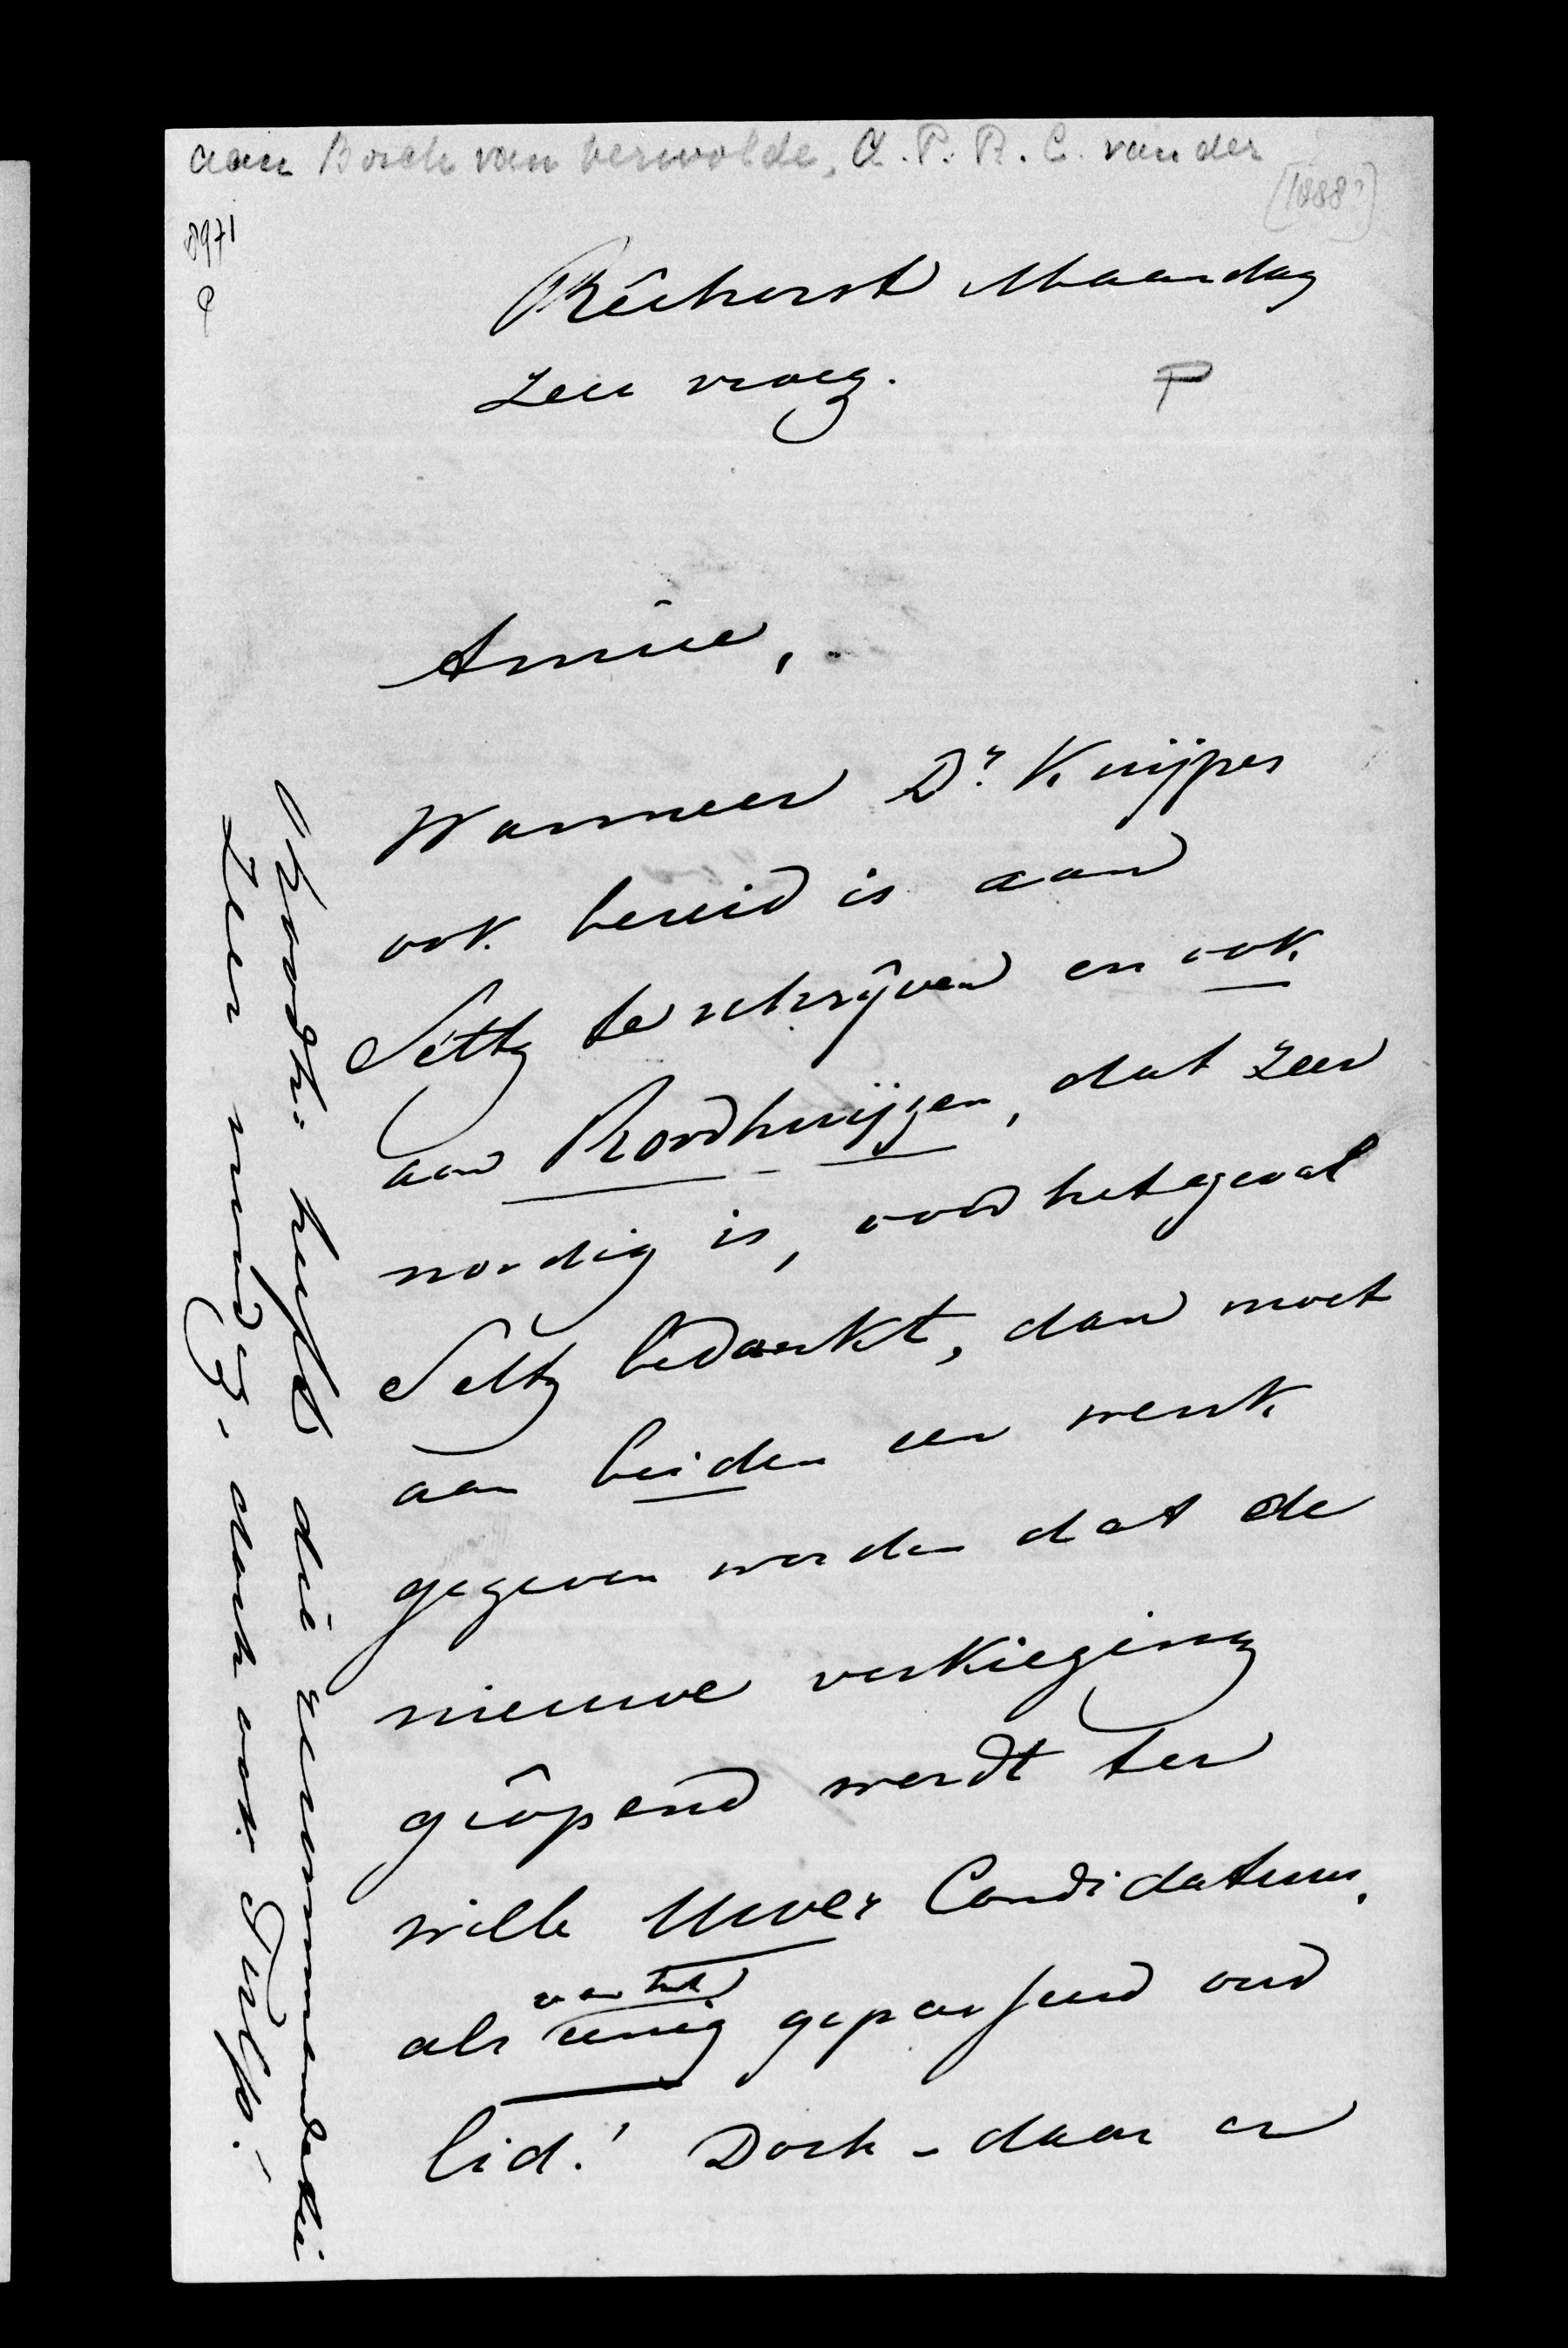 aan Bosch van Verwolde, A. P. R. C. van der
[1888?]
8971
Rêehorst Maandag
zeer vroeg.
P
Amice,
Wanneer Dr. Kuijper
ook bereid is aan
Settz te schrijven en ook
aan Roodhuijzen, dat zeer
noodig is, voor het geval
Settz bedankt, dan moet
aan beiden een wenk
gegeven worden dat de
nieuwe verkiezing
geopend wordt ter
wille Uwer Candidatuur,
als eenig gepasseerd oud
lid! Doch - daar er
Roodh: heeft die recommandatie
zeer noodig, doch ook